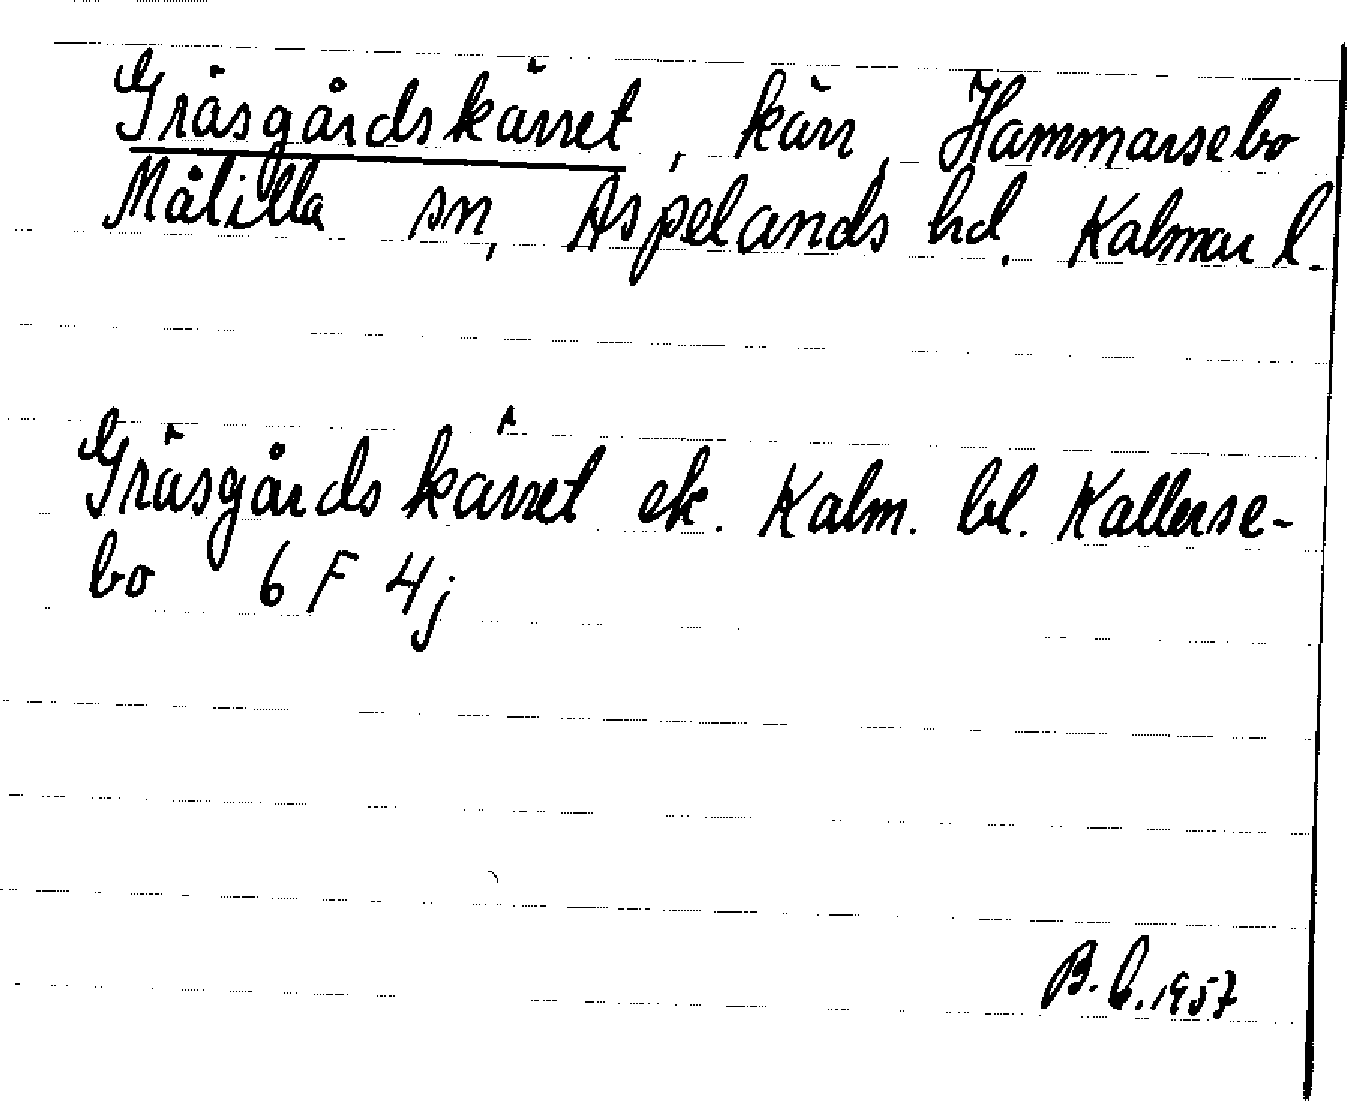 Gräsgårdskärret, kärr, Hammarsebo
Målilla sn, Aspelands hd. Kalmar l.
Gräsgårdskärret ek. Kalm. bl. Kallerse-
bo 6 F 4j
B.L. 1957